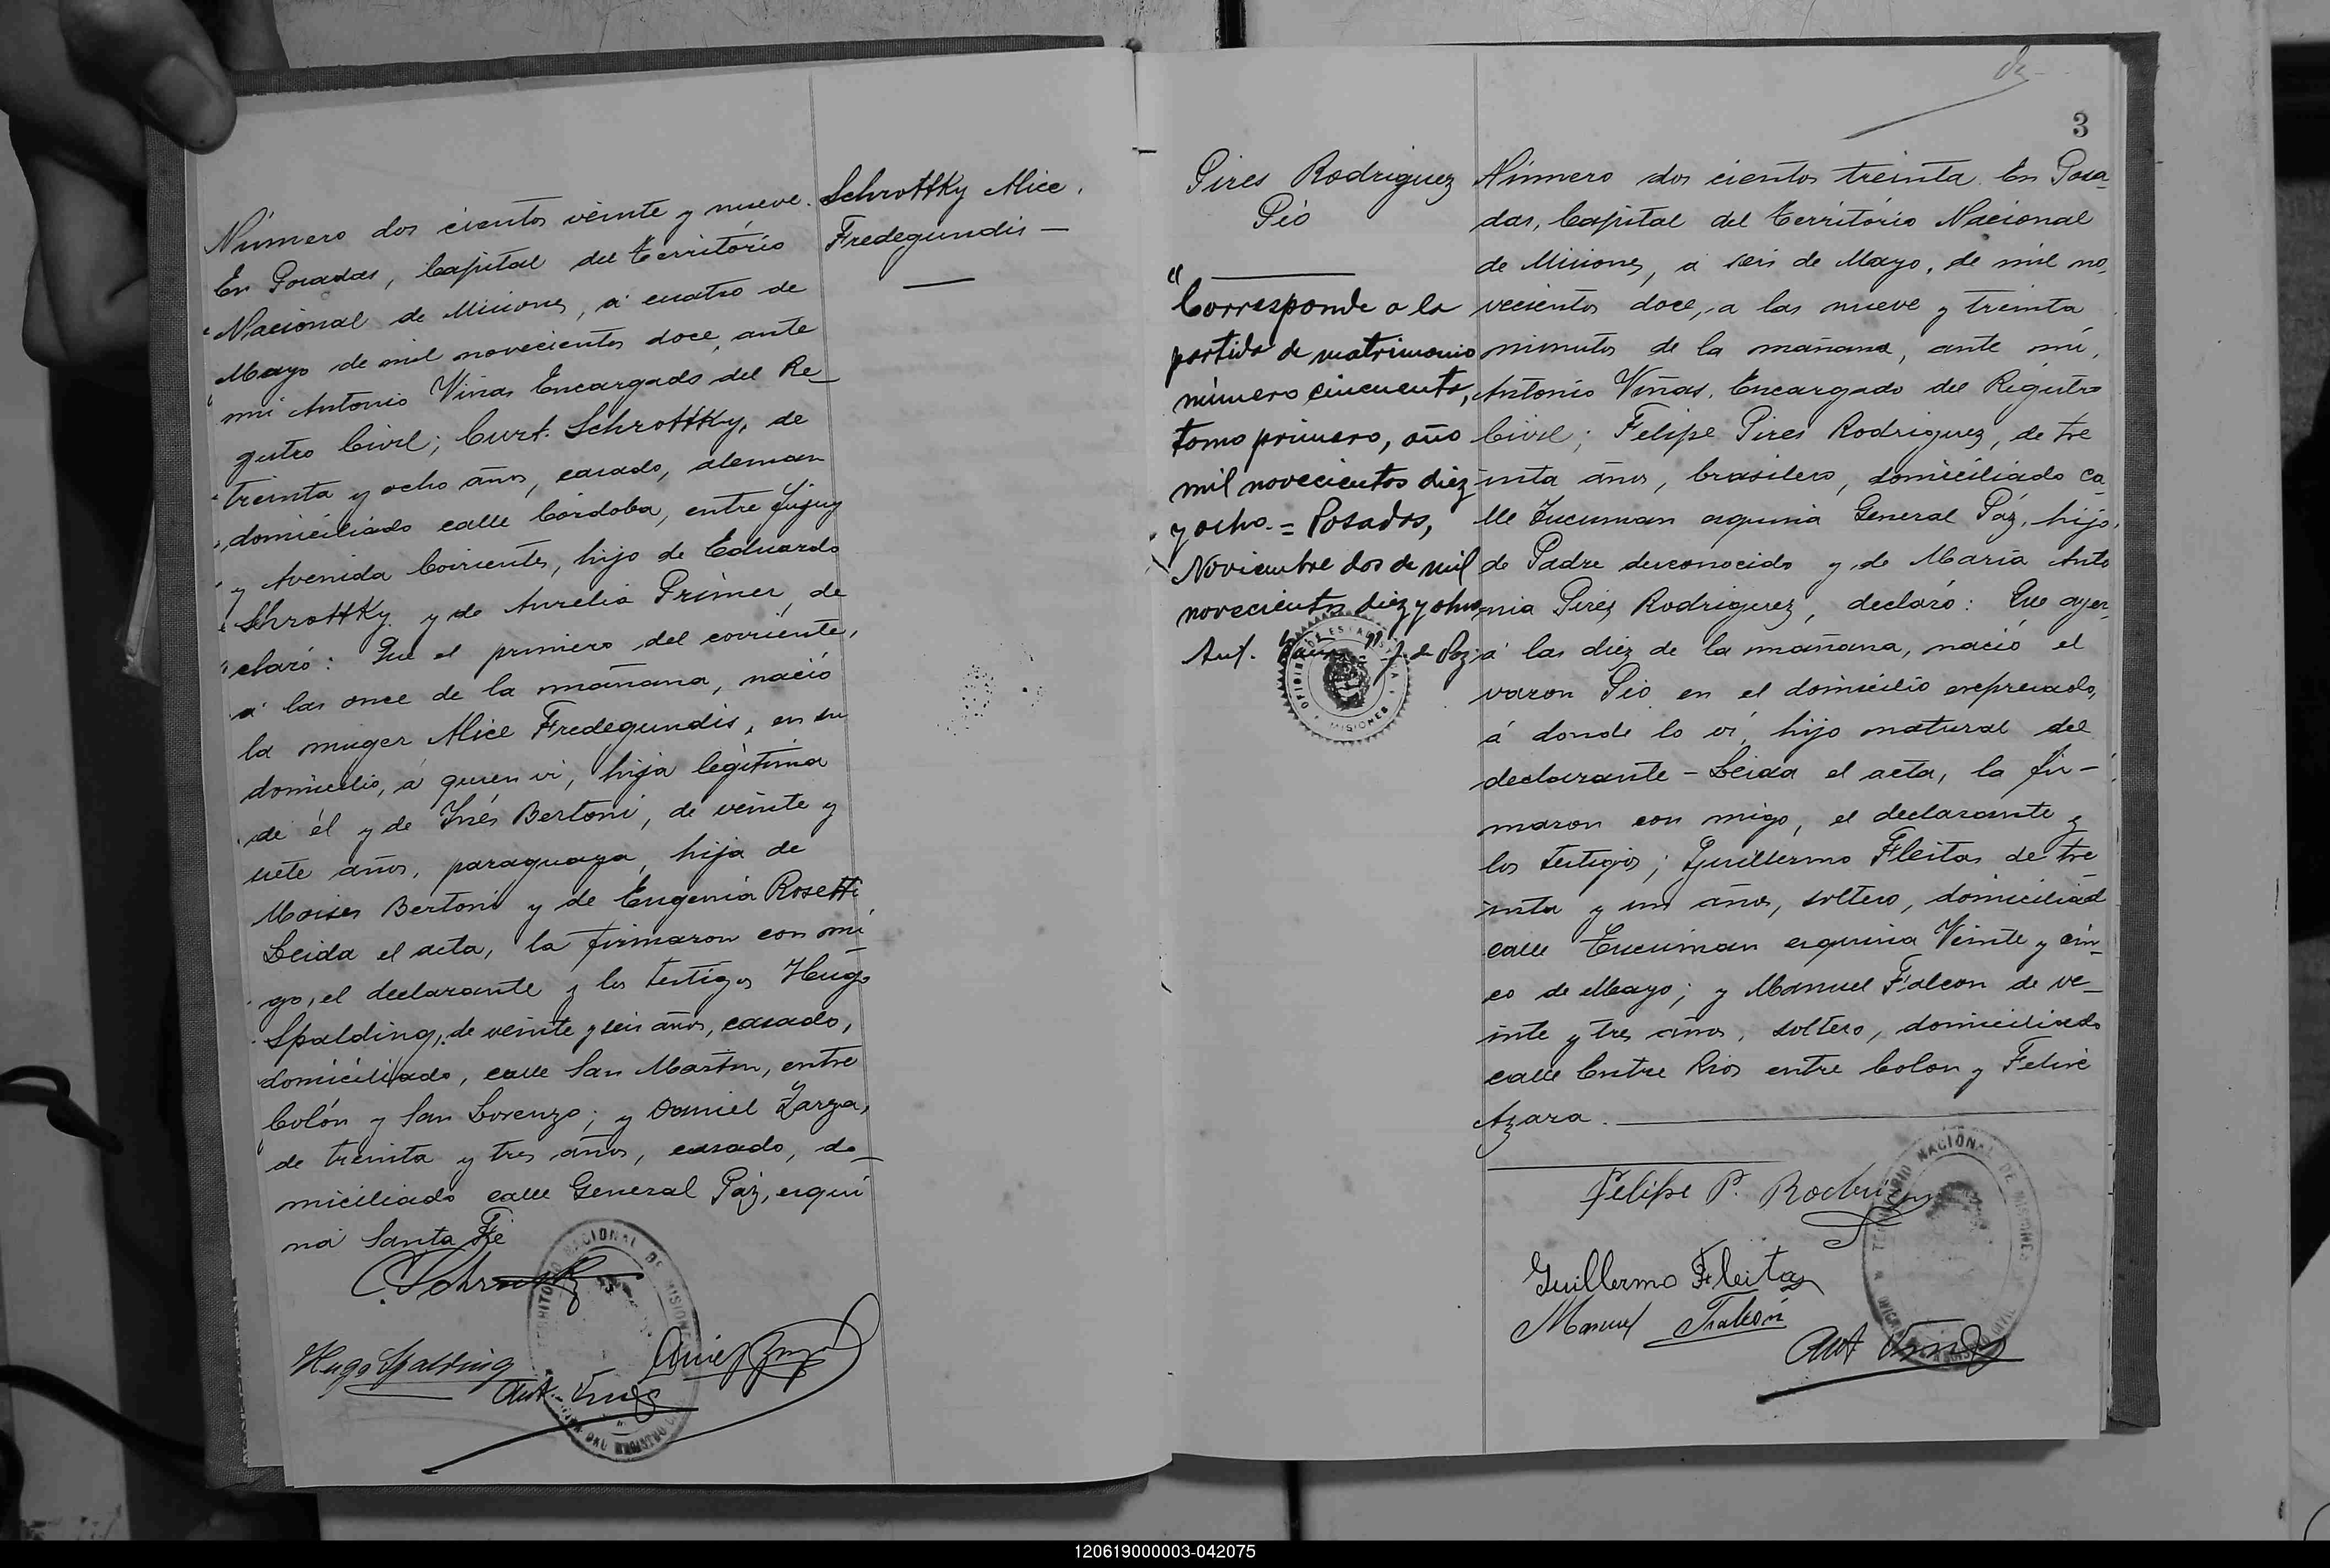 Schrottky Alice
Fredegundis —
Número dos cientos veinte y nueve.
En Posadas, Capital del Territorio
Nacional de Misiones, á cuatro de
Mayo de mil novecientos doce, ante
mi Antonio Viñas Encargado del Re_
gistro Civil; Curt. Schrottky, de
treinta y ocho años, casado, aleman
domiciliado calle Córdoba, entre Jujuy
y Avenida Corrientes, hijo de Eduardo
Schrottky y de Aurelia Primer, de
claró: Que el primero del corriente,
á las once de la mañana, nació
la muger Alice Fredegundis, en su
domicilio, á quien vi, hija legítima
de él y de Inés Bertoni, de veinte y
siete años, paraguaya, hija de
Moises Bertoni y de Eugenia Rosetti
Leida el acta, la firmaron con mi_
go, el declarante y los testigos Hugo
Spalding, de veinte y seis años, casado,
domiciliado, calle San Martin, entre
Colón y San Lorenzo; y Daniel Zarza,
de treinta y tres años, casado, do_
miciliado calle General Páz, esqui
na Santa Fé
C. Schrottky
Hugo Spalding
Ant. Viñas
TERRITORIO NACIONAL DE MISIONES
3
Pires Rodriguez
Pio
"Corresponde a la
partida de matrimonio
número cincuenta,
tomo primero, año
mil novecientos diez
y ocho. = Posadas,
Noviembre dos de mil
novecientos diez y ocho
Ant. Viñas" J. de Paz
MISIONES
Número dos cientos treinta. En Posa_
das, Capital del Territorio Nacional
de Misiones, á seis de Mayo, de mil no_
vecientos doce, a las nueve y treinta
minutos de la mañana, ante mi,
Antonio Viñas, Encargado del Registro
Civil; Felipe Pires Rodriguez, de tre
inta años, brasilero, domiciliado ca_
lle Tucuman esquina General Páz, hijo
de Padre desconocido y de Maria Anto
nia Pires Rodriguez, declaró: Que ayer
á las diez de la mañana, nació el
varon Pio en el domicilio expresado,
á donde lo vi, hijo natural del
declarante – Leida el acta, la fir–
maron con migo, el declarante y
los testigos; Guillermo Fleitas de tre
inta y un años, soltero, domiciliad
calle Tucuman esquina Veinte y cin_
co de Mayo; y Manuel Falcon de ve_
inte y tres años, soltero, domiciliado
calle Entre Rios entre Colon y Felix
Azara.
Felipe P. Rodriguez
Guillermo Fleitas
Manuel Falcón
Ant Viñas
TERRITORIO NACIONAL DE MISIONES
120619000003-042075